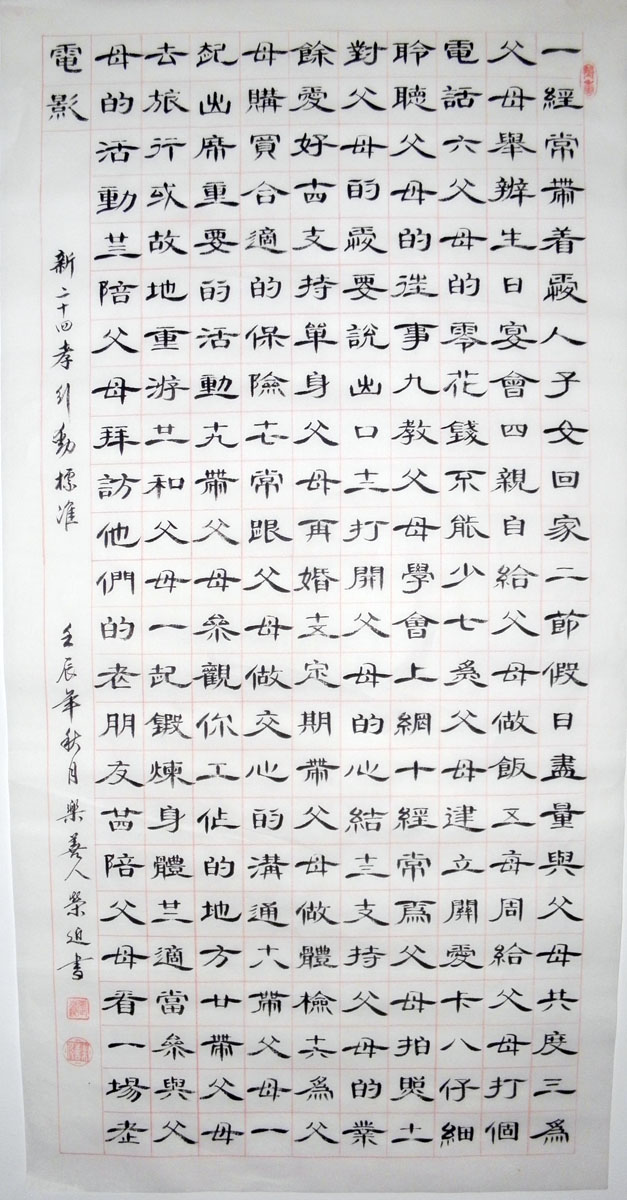 一經常帶着愛人子女回家二節假日盡量與父母共度三為
父母舉辦生日宴會四親自給父母做飯五每周給父母打個
電話六父母的零花錢不能少七為父母建立關愛卡八仔細
聆聽父母的往事九教父母學會上網十經常為父母拍照十一
對父母的愛要說出口十二打開父母的心結十三支持父母的業
餘愛好十四支持單身父母再婚十五定期帶父母做體檢十六為父
母購買合適的保險十七常跟父母做交心的溝通十八帶父母一
起出席重要的活動十九帶父母參觀你工作的地方廿帶父母
去旅行或故地重游廿一和父母一起鍛煉身體廿二適當參與父
母的活動廿三陪父母拜訪他們的老朋友廿四陪父母看一場老
電影
新二十四孝行動標准 壬辰年秋月樂善人榮書